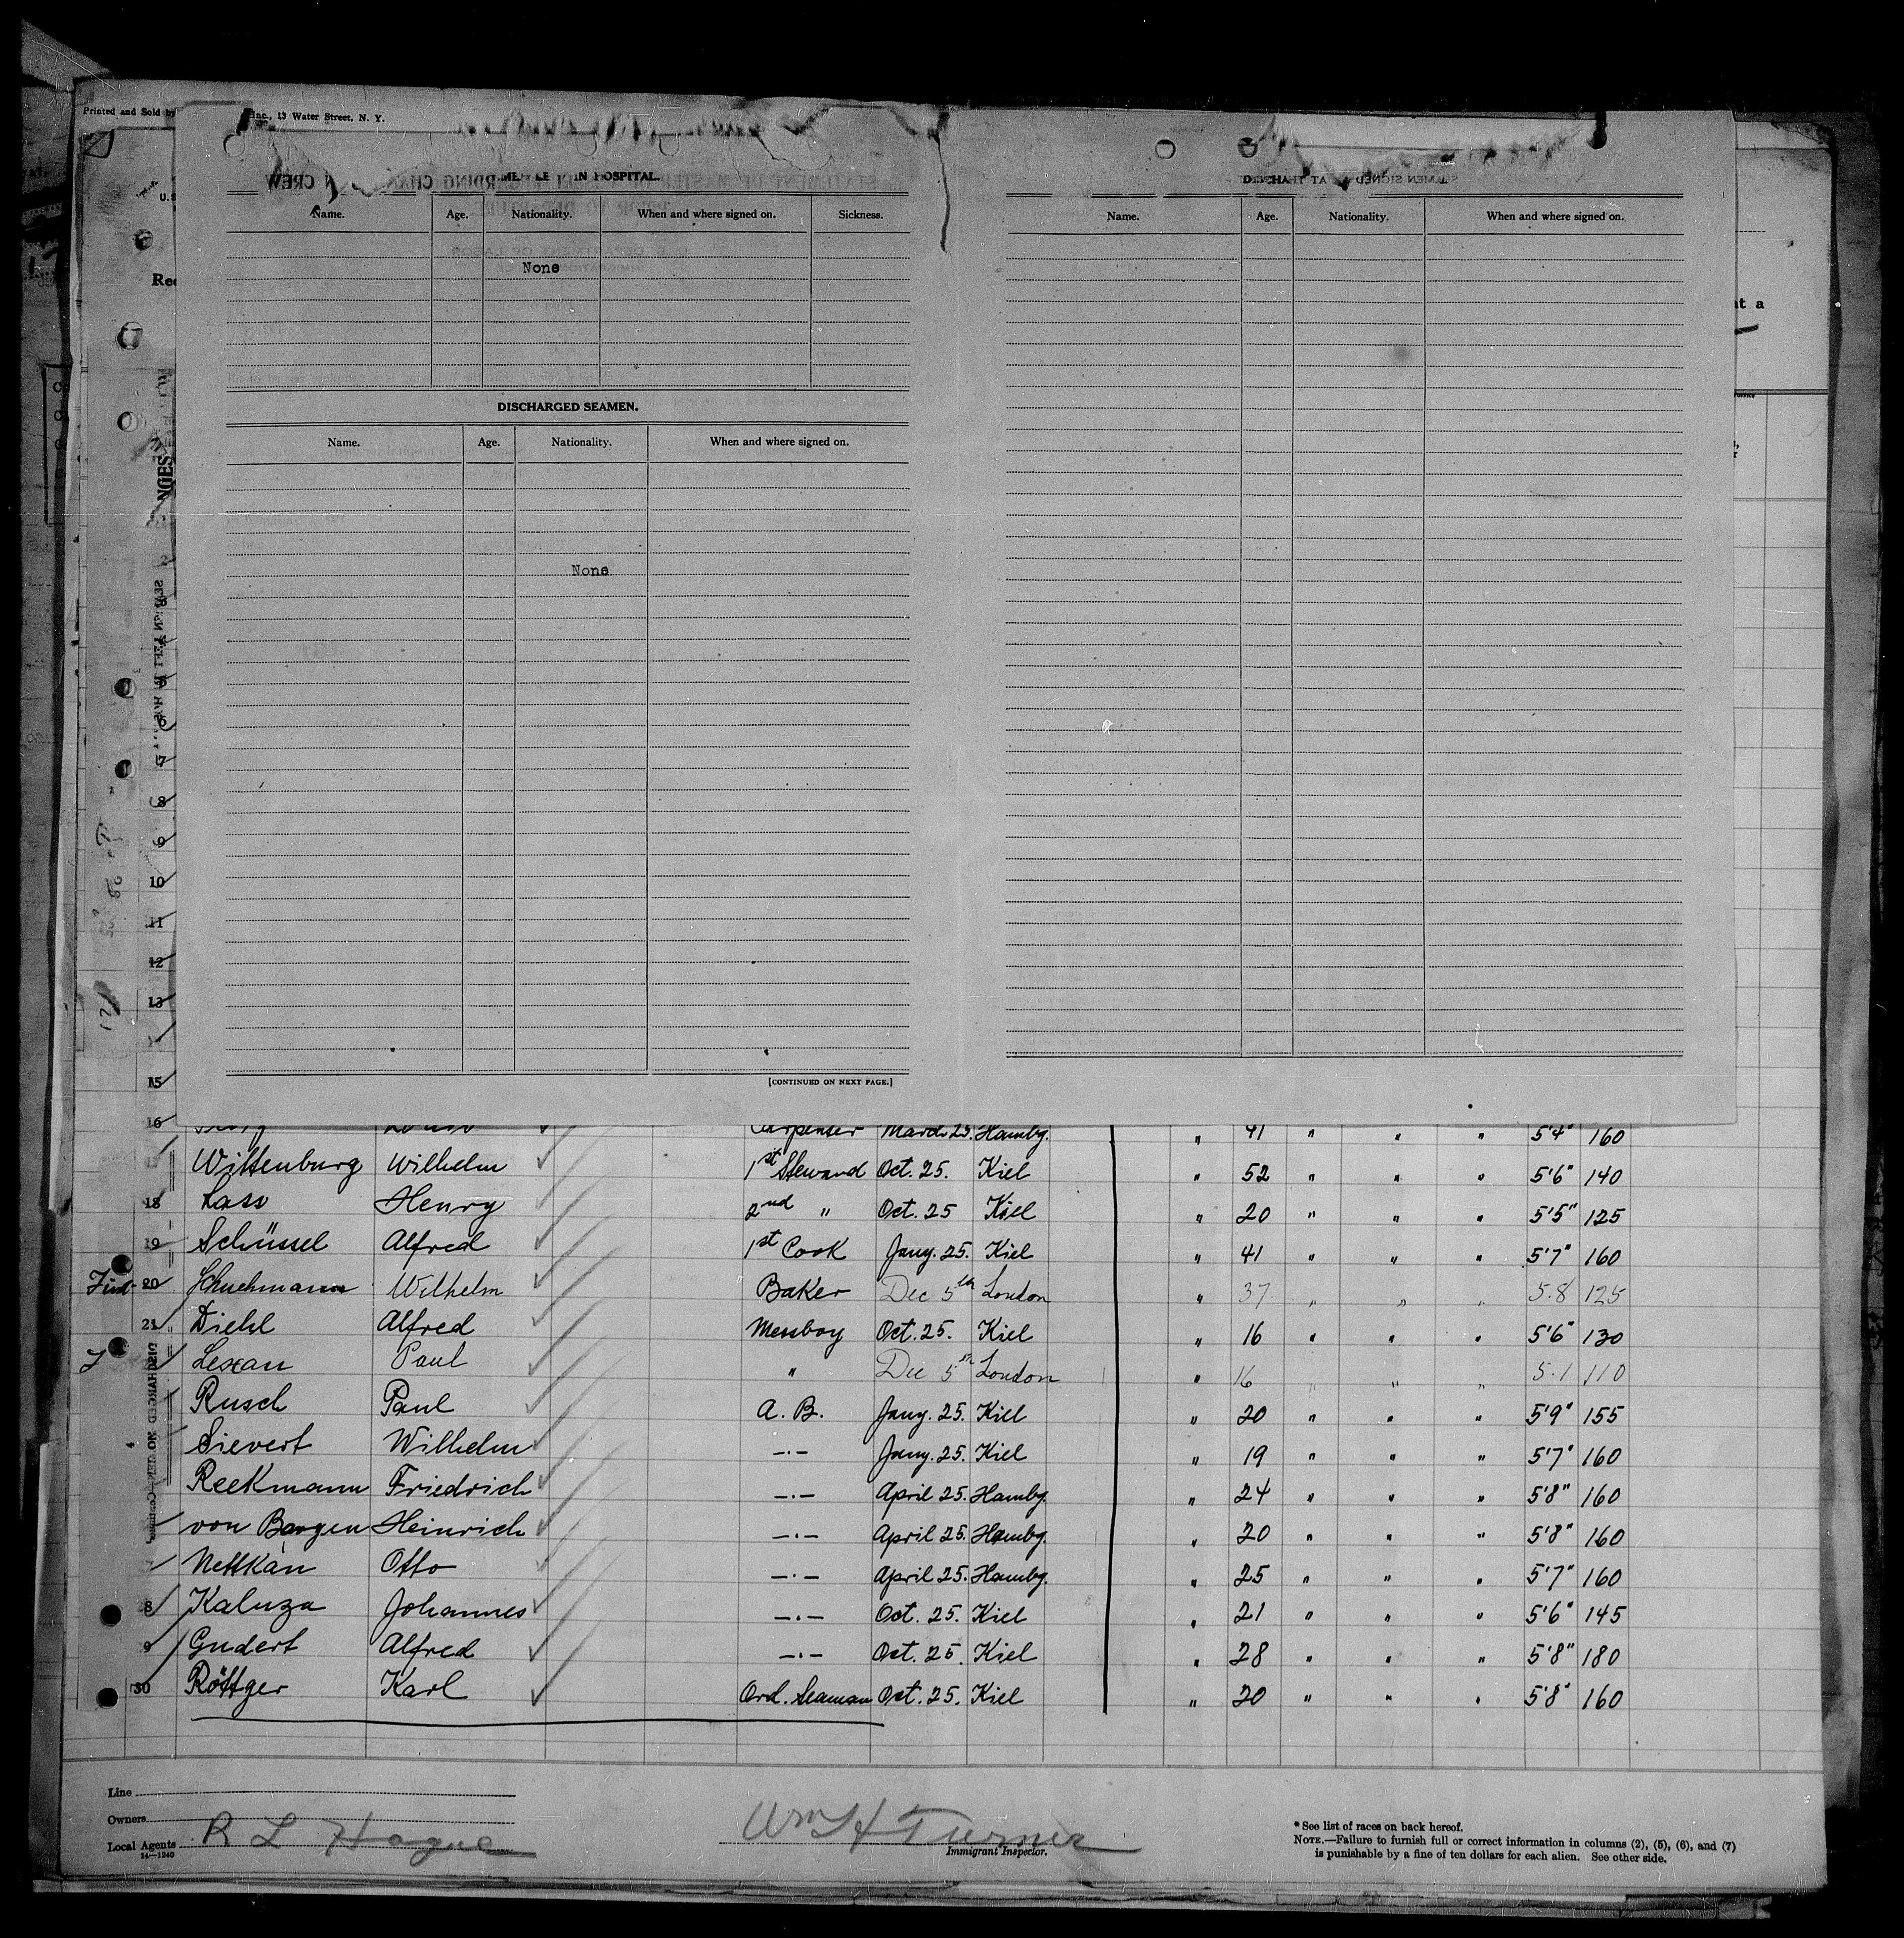 Printed and Sold by
Inc., 13 Water Street, N. Y.
IN HOSPITAL.
Name. Age. Nationality. When and where signed on. Sickness.
None
DISCHARGED SEAMEN.
Name. Age. Nationality. When and where signed on.
None
[CONTINUED ON NEXT PAGE.]
Name. Age. Nationality. When and where signed on.
at a
8
9
10
11
12
13
15
16 Carpenter March 25. Hambg. " 41 " " " 5'4" 160
Wittenburg Wilhelm 1st Steward Oct. 25. Kiel " 52 " " " 5'6" 140
18 Lass Henry 2nd " Oct. 25 Kiel " 20 " " " 5'5" 125
19 Schüssel Alfred 1st Cook Jany. 25. Kiel " 41 " " " 5'7" 160
20 Schuhmann Wilhelm Baker Dec 5th London " 37 " " " 5.8 125
21 Diehl Alfred Messboy Oct. 25. Kiel " 16 " " " 5'6" 130
Lexan Paul " Dec 5th London " 16 " " " 5.1 110
Rusch Paul A. B. Jany. 25. Kiel " 20 " " " 5'9" 155
Sievert Wilhelm -.- Jany. 25. Kiel " 19 " " " 5'7" 160
Reekmann Friedrich -.- April 25. Hambg. " 24 " " " 5'8" 160
von Bargen Heinrich -.- April 25. Hambg. " 20 " " " 5'8" 160
Nettkan Otto -.- April 25. Hambg. " 25 " " " 5'7" 160
8 Kaluza Johannes -.- Oct. 25. Kiel " 21 " " " 5'6" 145
9 Gudert Alfred -.- Oct. 25. Kiel " 28 " " " 5'8" 180
30 Röttger Karl Ord. Seaman Oct. 25. Kiel " 20 " " " 5'8" 160
Line
Owners
Local Agents R L Hague
14—1240
Wm H Turner
Immigrant Inspector.
* See list of races on back hereof.
NOTE.—Failure to furnish full or correct information in columns (2), (5), (6), and (7)
is punishable by a fine of ten dollars for each alien. See other side.